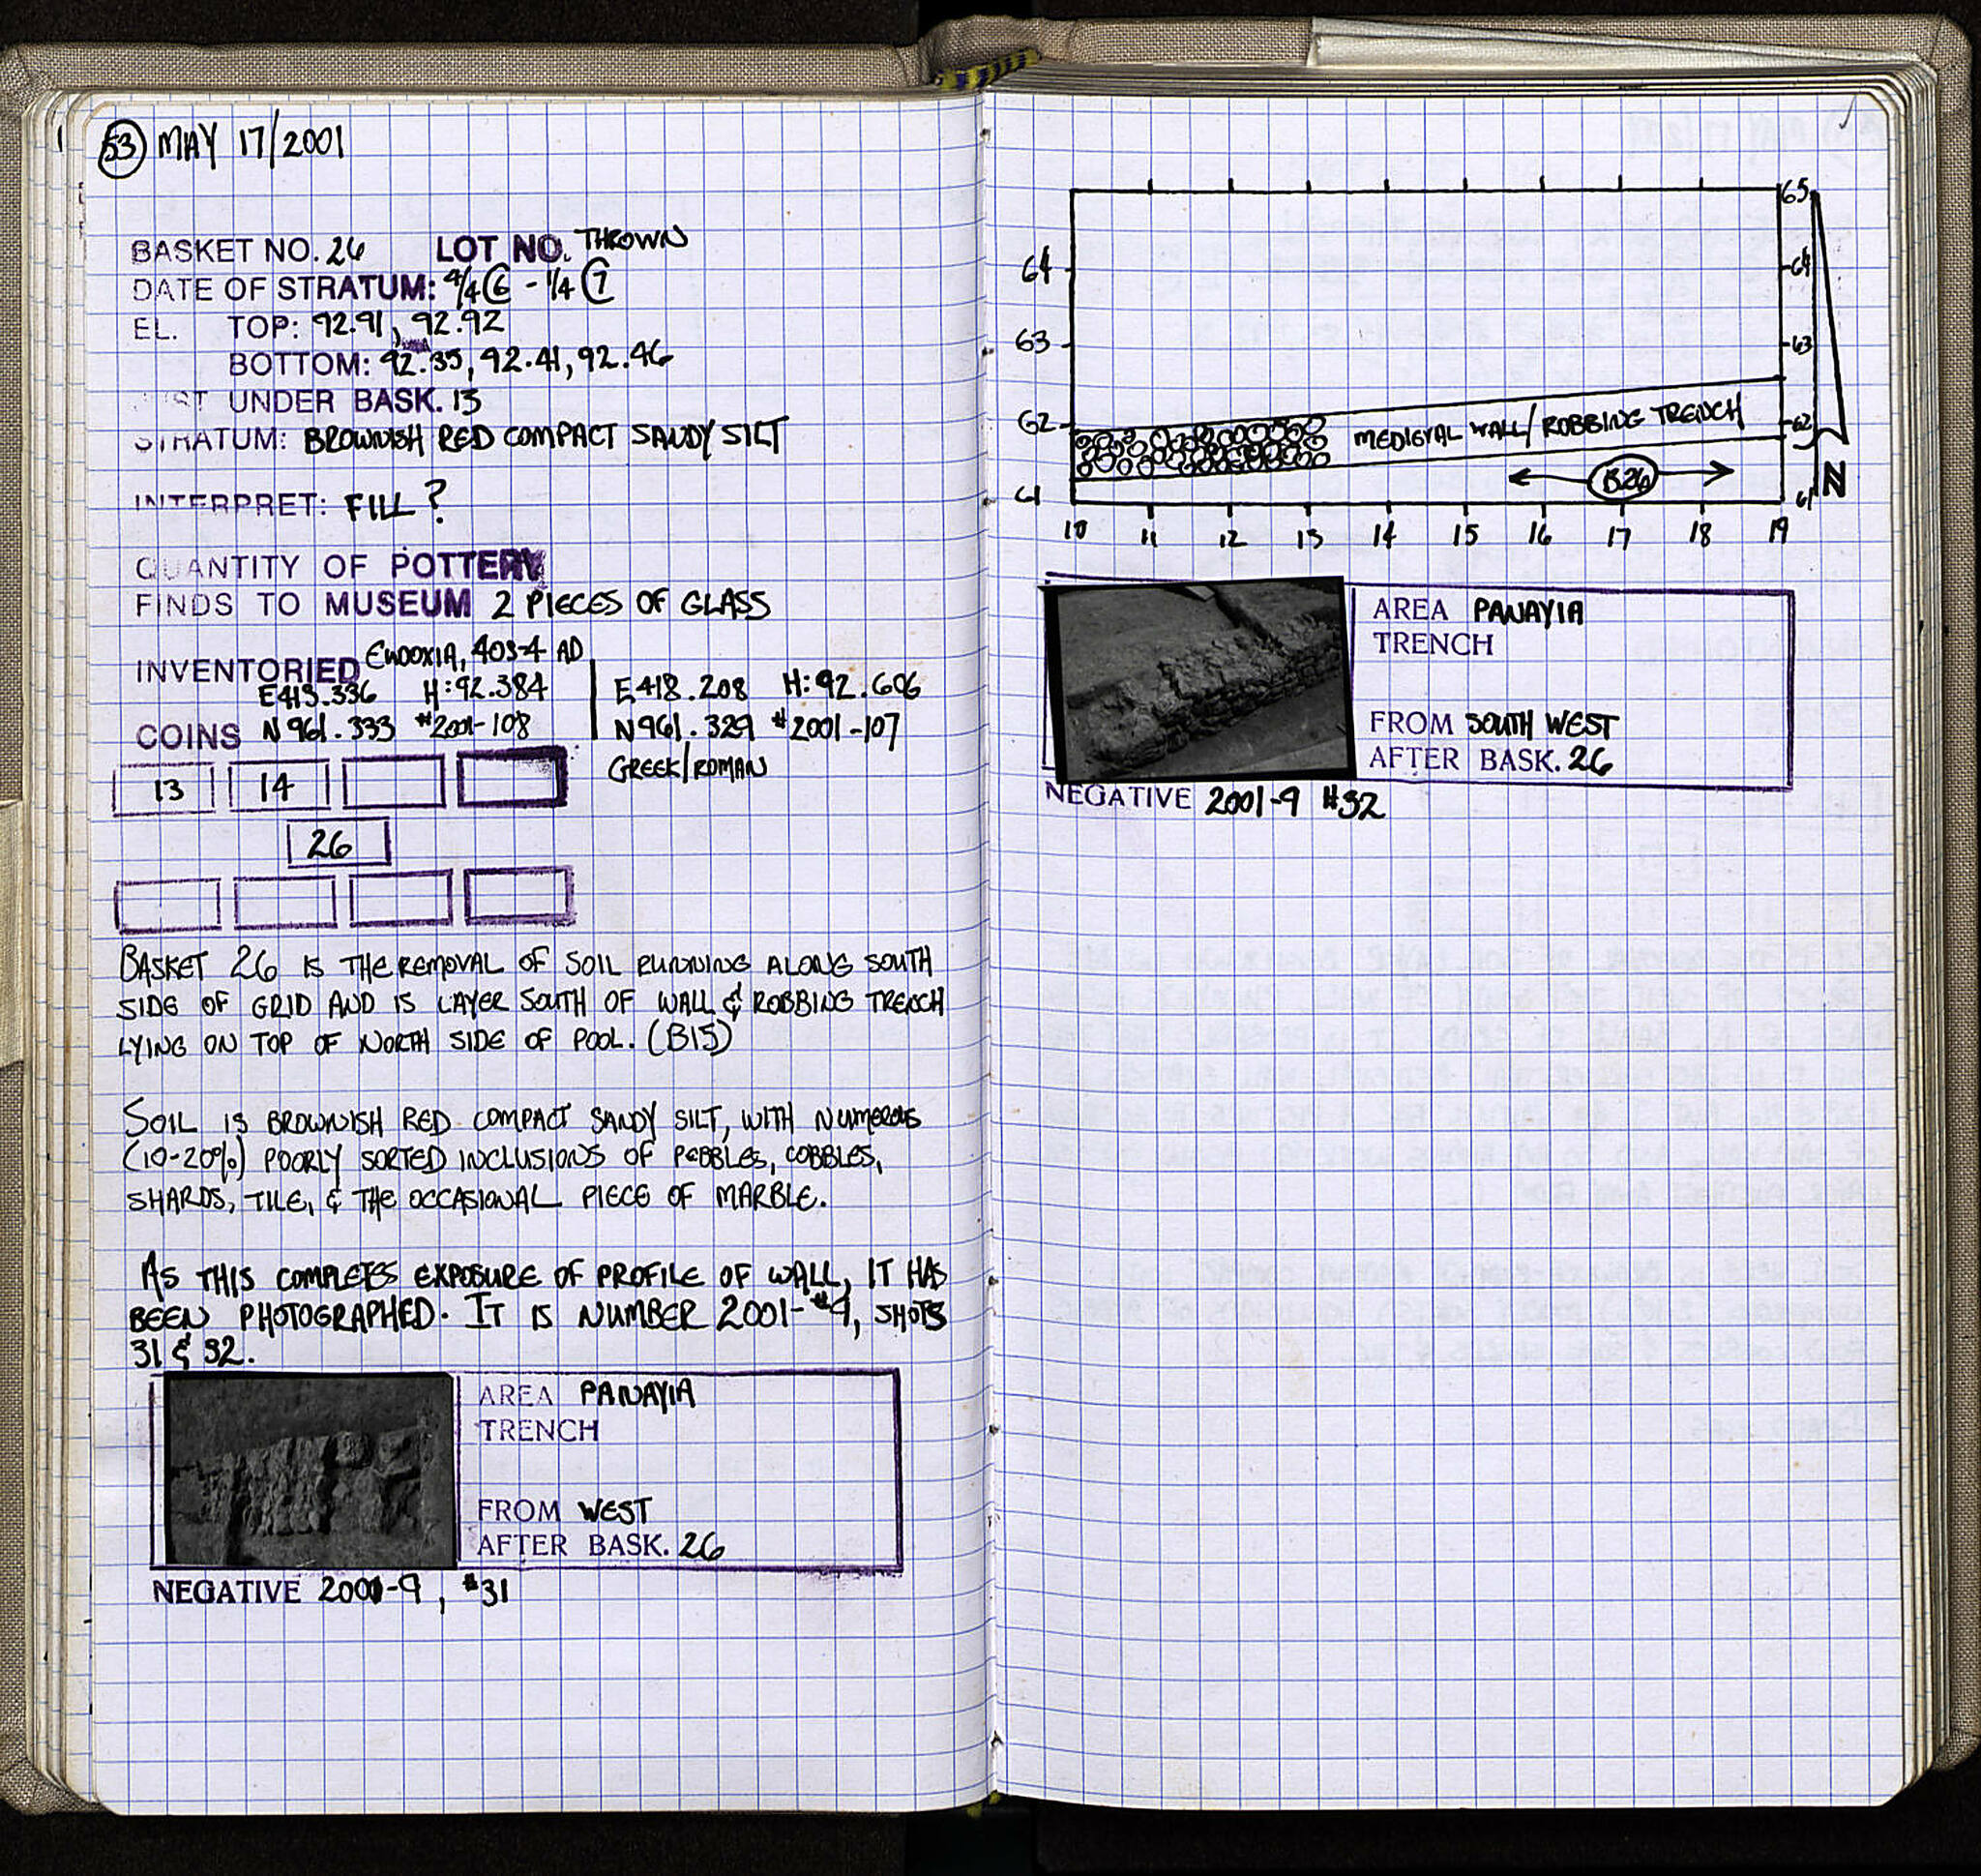 53 MAY 17/2001
BASKET NO. 26 LOT NO. THROWN
DATE OF STRATUM: 4/4 C6 - 1/4 C7
EL. TOP: 92.91, 92.92
BOTTOM: 92.35, 92.41, 92.46
UNDER BASK. 13
STRATUM: BROWNISH RED COMPACT SANDY SILT
INTERPRET: FILL?
QUANTITY OF POTTERY
FINDS TO MUSEUM 2 PIECES OF GLASS
INVENTORIED EUDOXIA, 403-4 AD
E413.336 H: 92.384 E418.208 H: 92.606
COINS N961.333 #2001-108 N961.329 #2001-107
GREEK/ROMAN
13 14
26
BASKET 26 IS THE REMOVAL OF SOIL RUNNING ALONG SOUTH
SIDE OF GRID AND IS LAYER SOUTH OF WALL & ROBBING TRENCH
LYING ON TOP OF NORTH SIDE OF POOL. (B15)
SOIL IS BROWNISH RED COMPACT SANDY SILT, WITH NUMEROUS
(10-20%) POORLY SORTED INCLUSIONS OF PEBBLES, COBBLES,
SHARDS, TILE, & THE OCCASIONAL PIECE OF MARBLE.
AS THIS COMPLETES EXPOSURE OF PROFILE OF WALL, IT HAS
BEEN PHOTOGRAPHED. IT IS NUMBER 2001-#9, SHOTS
31 & 32.
AREA PANAYIA
TRENCH
FROM WEST
AFTER BASK. 26
NEGATIVE 2001-9, #31
65
64 64
63 63
62 MEDIEVAL WALL/ROBBING TRENCH 62
B26
61 61 N
10 11 12 13 14 15 16 17 18 19
AREA PANAYIA
TRENCH
FROM SOUTH WEST
AFTER BASK. 26
NEGATIVE 2001-9 #32